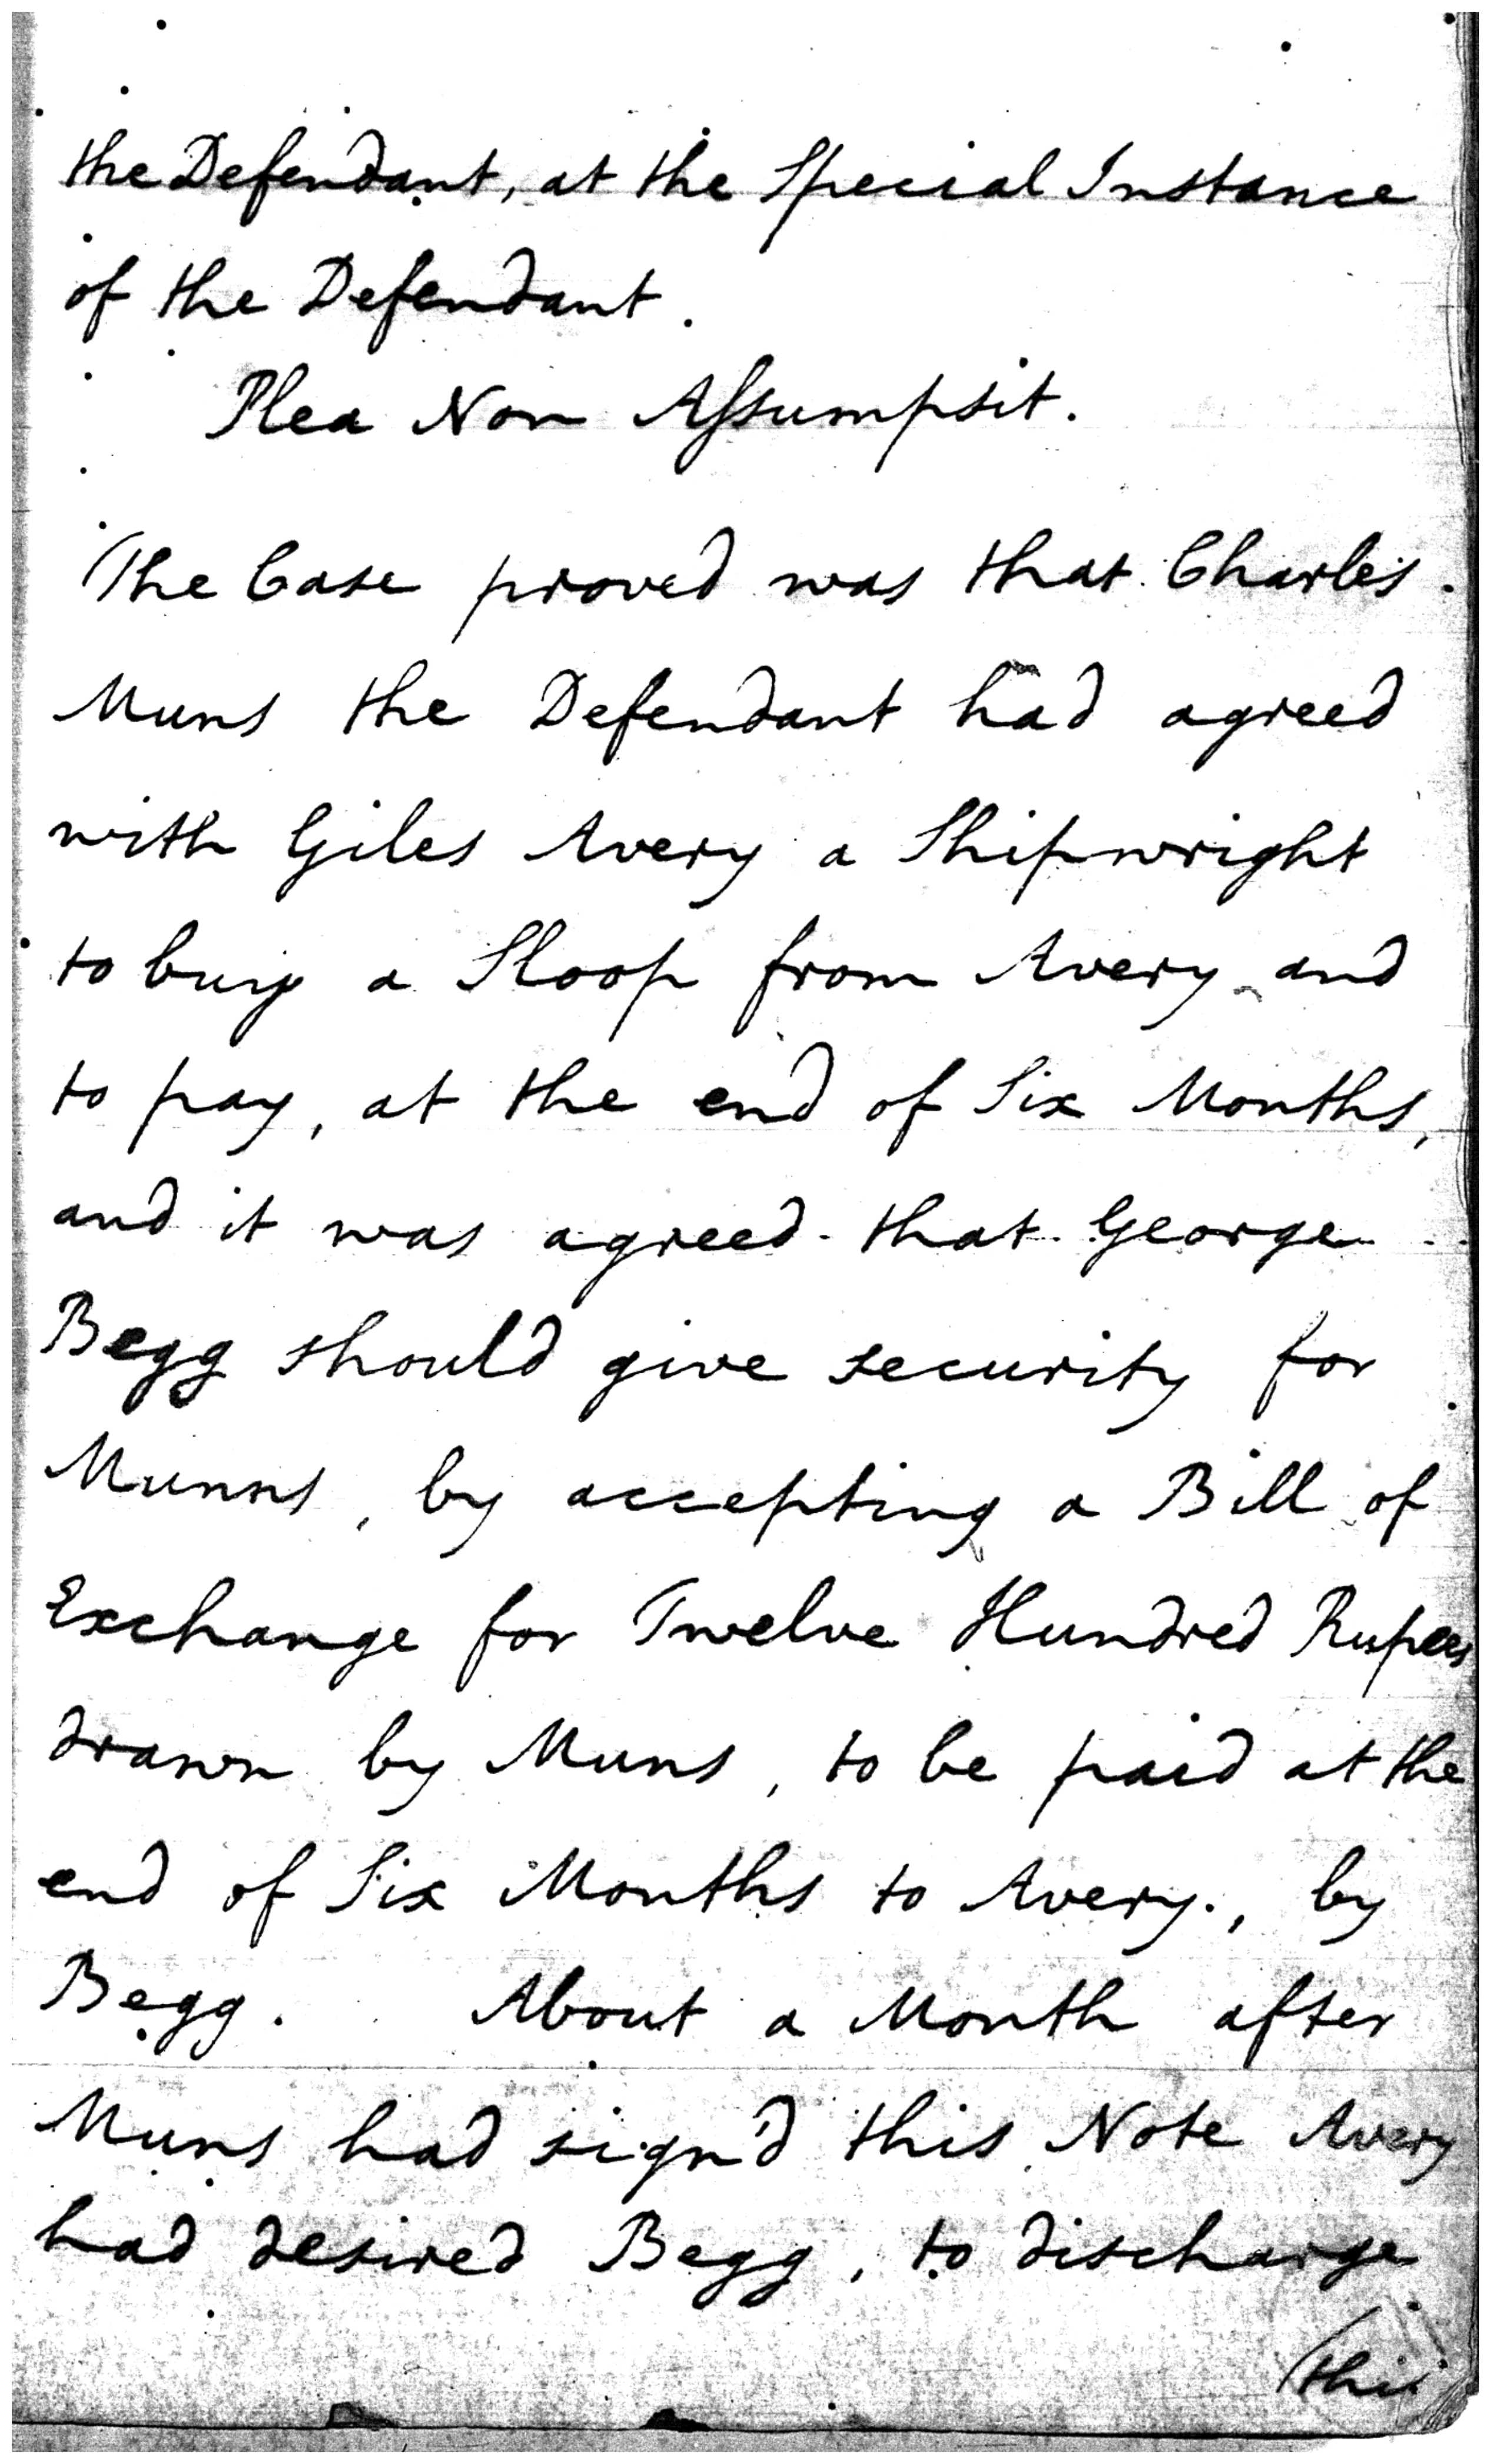 the Defendant, at the Special Instance
of the Defendant.
Plea Non Assumpsit.
The Case proved was that Charles
Muns the Defendant had agreed
with Giles Avery a Shipwright
to buy a Sloop from Avery and
to pay, at the end of Six Months,
and it was agreed that George
Begg should give security for
Munns, by accepting a Bill of
Exchange for Twelve Hundred Rupees
drawn by Muns, to be paid at the
end of Six Months to Avery., by
Begg. About a Month after
Muns had sign'd this Note Avery
had desired Begg, to discharge
(this